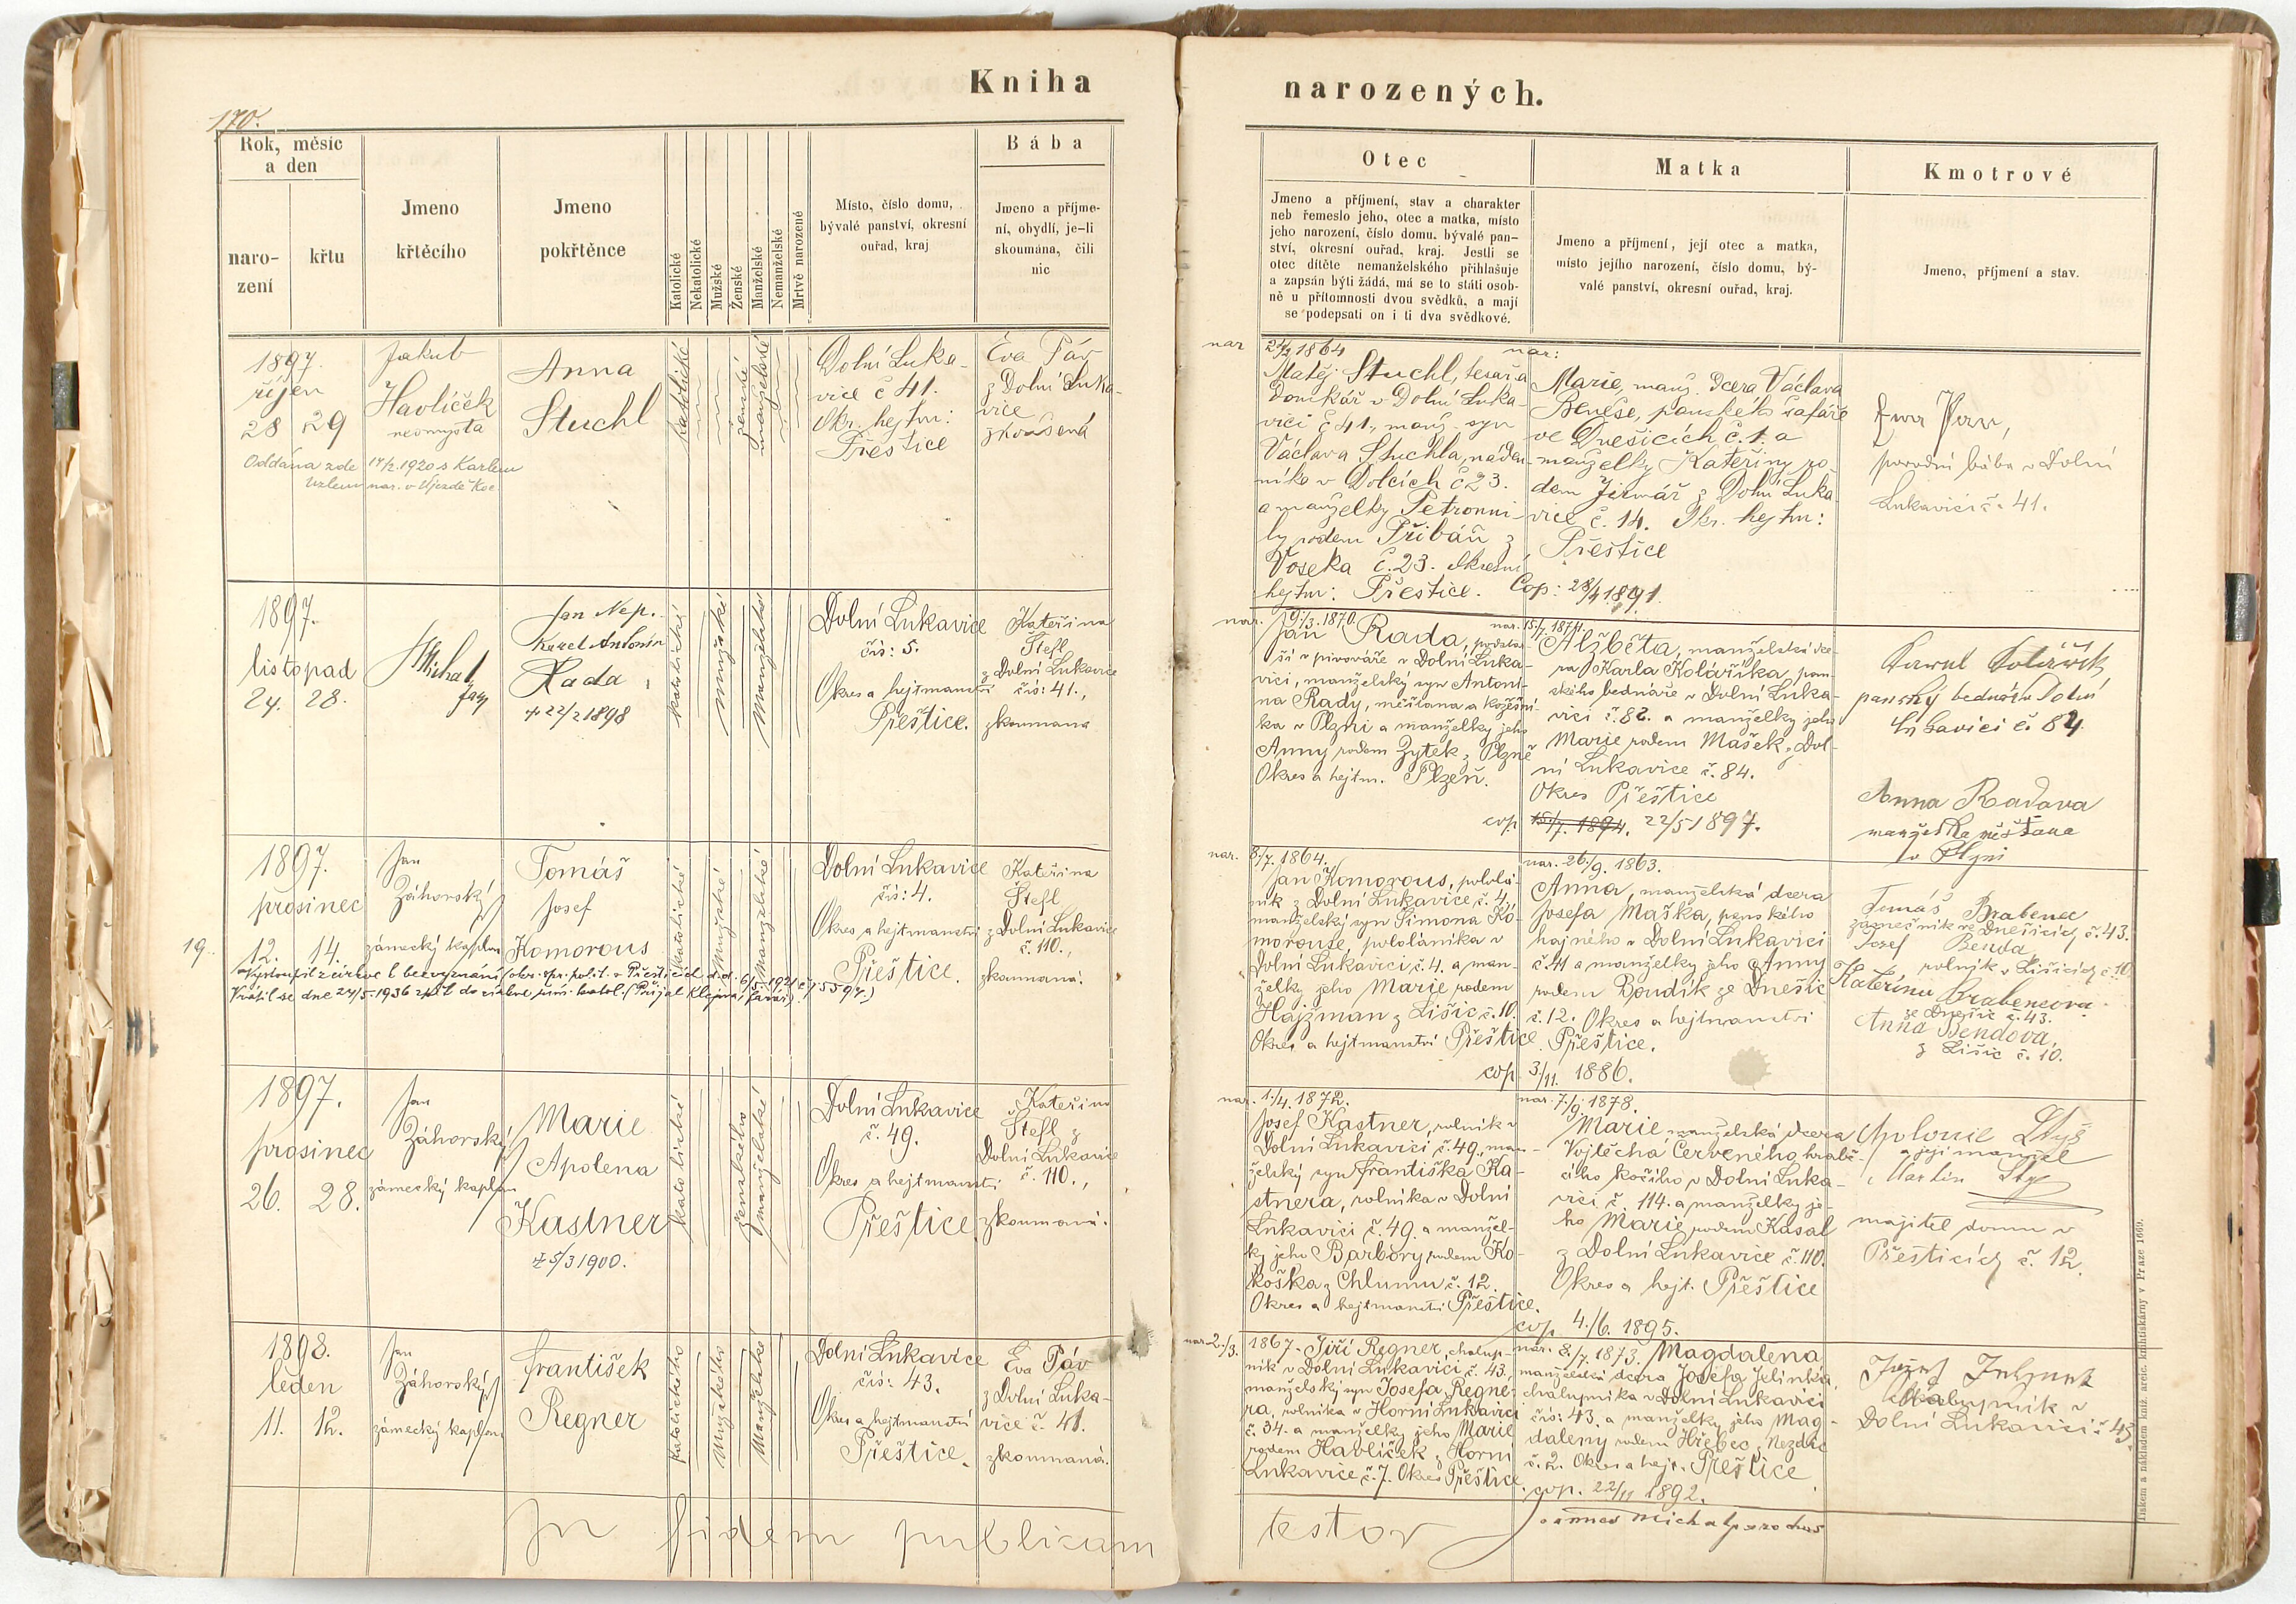 Kniha
narozených.
170.
Rok, měsíc
a den
naro-
zení
křtu
Jmeno
křtěcího
Jmeno
pokřtěnce
Katolické
Nekatolické
Mužské
Ženské
Manželské
Nemanželské
Mrtvě narozené
Místo, číslo domu,
bývalé panství, okresní
ouřad, kraj
Bába
Jmeno a příjme-
ní, obydlí, je-li
skoumána, čili
nic
Otec
Jmeno a příjmení, stav a charakter
neb řemeslo jeho, otec a matka, místo
jeho narození, číslo domu, bývalé pan-
ství, okresní ouřad, kraj. Jestli se
otec dítěte nemanželského přihlašuje
a zapsán býti žádá, má se to státi osob-
ně u přítomnosti dvou svědků, a mají
se podepsati on i ti dva svědkové.
Matka
Jmeno a příjmení, její otec a matka,
místo jejího narození, číslo domu, bý-
valé panství, okresní ouřad, kraj.
Kmotrové
Jmeno, příjmení a stav.
1897.
říjen
28 29
Jakub
Havlíček
Anna
Stuchl
Oddána zde 14/2.1920 s Karlem
nar. v Újezdě
katolické
ženské
manželské
Dolní Luka-
vice č 41.
Okr. hejtm:
Přeštice
Eva Páv
z Dolní Luka-
vice
zkoušená
nar 24/2 1864
Matěj Stuchl, tesař a
Domkář v Dolní Luka-
vici č 41., manž. syn
Václava Stuchla, náden-
níka v Dolcích č 23.
a manželky Petronni-
ly rodem Přibáň z
Voseka č. 23. Okresní
hejtm: Přeštice.
nar:
Marie, manž. dcera Václava
Beneše, panského šafáře
ve Dnešicích č. 1. a
manželky Kateřiny ro-
dem Jirmář z Dolní Luka-
vice č. 14. Okr. hejtm:
Přeštice
Cop: 28/4 1891.
Ewa Paw,
porodní bába v Dolní
Lukavici č. 41.
1897.
listopad
24. 28.
J Michal
farář
Jan Nep.
Karel Antonín
Rada
+ 22/2 1898
katolické
mužské
manželské
Dolní Lukavice
čís: 5.
Okres a hejtmanství
Přeštice.
Kateřina
Štefl
z Dolní Lukavice
čís: 41.,
zkoumaná
nar. 19./3. 1870.
Jan Rada,
ší v pivováře v Dolní Luka-
vici, manželský syn Antoní-
na Rady, měšťana a kožešní-
ka v Plzni a manželky jeho
Anny rodem Zytek z Plzně
Okres a hejtm. Plzeň.
nar. 15./7. 1874.
Alžběta, manželská dce-
ra Karla Kolářika, pan-
ského bednáře v Dolní Luka-
vici č. 82. a manželky jeho
Marie rodem Mašek z Dol-
ní Lukavice č. 84.
Okres Přeštice
cop. 15./7. 1874. 22/5 1897.
panský bednář v Dolní
Lukavici č. 84.
Anna Radova
manželka měšťana
v Plzni
1897.
prosinec
19. 12. 14.
Jan
Záhorský
zámecký kaplan
Tomáš
Josef
Komorous
Vystoupil z církve k bezvyznání (okr. spr. polit. v Přešticích d.d. 6/5. 1921 č. j. 5597.)
Vrátil se dne 24/5. 1936 zpět do církve řím. katol. (Přijal Klejna, farář.)
katolické
Mužské
Manželské
Dolní Lukavice
čís: 4.
Okres a hejtmanství
Přeštice.
Kateřina
Štefl
z Dolní Lukavice
č. 110.,
zkoumaná.
nar. 8./7. 1864.
Jan Komorous, pololá-
ník z Dolní Lukavice, č. 4.
manželský syn Šimona Ko-
morouse, pololáníka v
Dolní Lukavici, č. 4. a man-
želky jeho Marie rodem
Hajzman z Lišic č. 10.
Okres a hejtmanství Přeštice.
nar. 26./9. 1863.
Anna, manželská dcera
Josefa Maška, panského
hajného v Dolní Lukavici
č. 41 a manželky jeho Anny
rodem Boudík ze Dnešic
č. 12. Okres a hejtmanství
Přeštice.
cop. 3/11. 1886.
Tomáš Brabenec
ve Dnešicích č. 43.
Josef Benda
rolník v Lišicích č. 10.
Kateřina Brabencova
ze Dnešic č. 43.
Anna Bendova,
z Lišic č. 10.
1897.
prosinec
26. 28.
Jan
Záhorský
zámecký kaplan
Marie
Apolena
Kastner
+ 5/3 1900.
katolické
ženského
manželské
Dolní Lukavice
č. 49.
Okres a hejtmanství
Přeštice
Kateřina
Štefl z
Dolní Lukavice
č. 110.,
zkoumaná.
nar. 1./4. 1872.
Josef Kastner, rolník v
Dolní Lukavici č. 49., man-
želský syn Františka Ka-
stnera, rolníka v Dolní
Lukavici č. 49. a manžel-
ky jeho Barbory, rodem Ko-
koška z Chlumu č. 12.
Okres a hejtmanství Přeštice.
nar. 7./9. 1878.
Marie manželská dcera
Vojtěcha Červeného, hrabě-
cího kočího v Dolní Luka-
vici č. 114. a manželky je-
ho Marie, rodem Kasal
z Dolní Lukavice č. 110.
Okres a hejt. Přeštice
cop. 4./6. 1895.
Apolonie
a její manžel
Martin
majitel domu v
Přešticích č. 12.
1898.
leden
11. 12.
Jan
Záhorský
zámecký kaplan
František
Regner
katolického
Mužského
Manželské
Dolní Lukavice
čís: 43.
Okres a hejtmanství
Přeštice.
Eva Páv
z Dolní Luka-
vice č. 41.
zkoumaná.
nar. 2./3. 1867. Jiří Regner, chalup-
ník v Dolní Lukavici č. 43.,
manželský syn Josefa Regne-
ra, rolníka v Horní Lukavici
č. 34. a manželky jeho Marie
rodem Havlíček z Horní
Lukavice č. 7. Okres Přeštice.
nar. 8./7. 1873. Magdalena
manželská dcera Josefa Jelínka,
chalupníka v Dolní Lukavici
čís: 43. a manželky jeho Mag-
daleny rodem Hřebec z Nezdic
č. 2. Okres a hejt. Přeštice
cop. 22/11 1892.
Josef
chalupník v
Dolní Lukavici č 43.
In fidem publicam
testor
Joannes Michal parochus
Tiskem a nákladem kníž. arcib. knihtiskárny v Praze 1669.